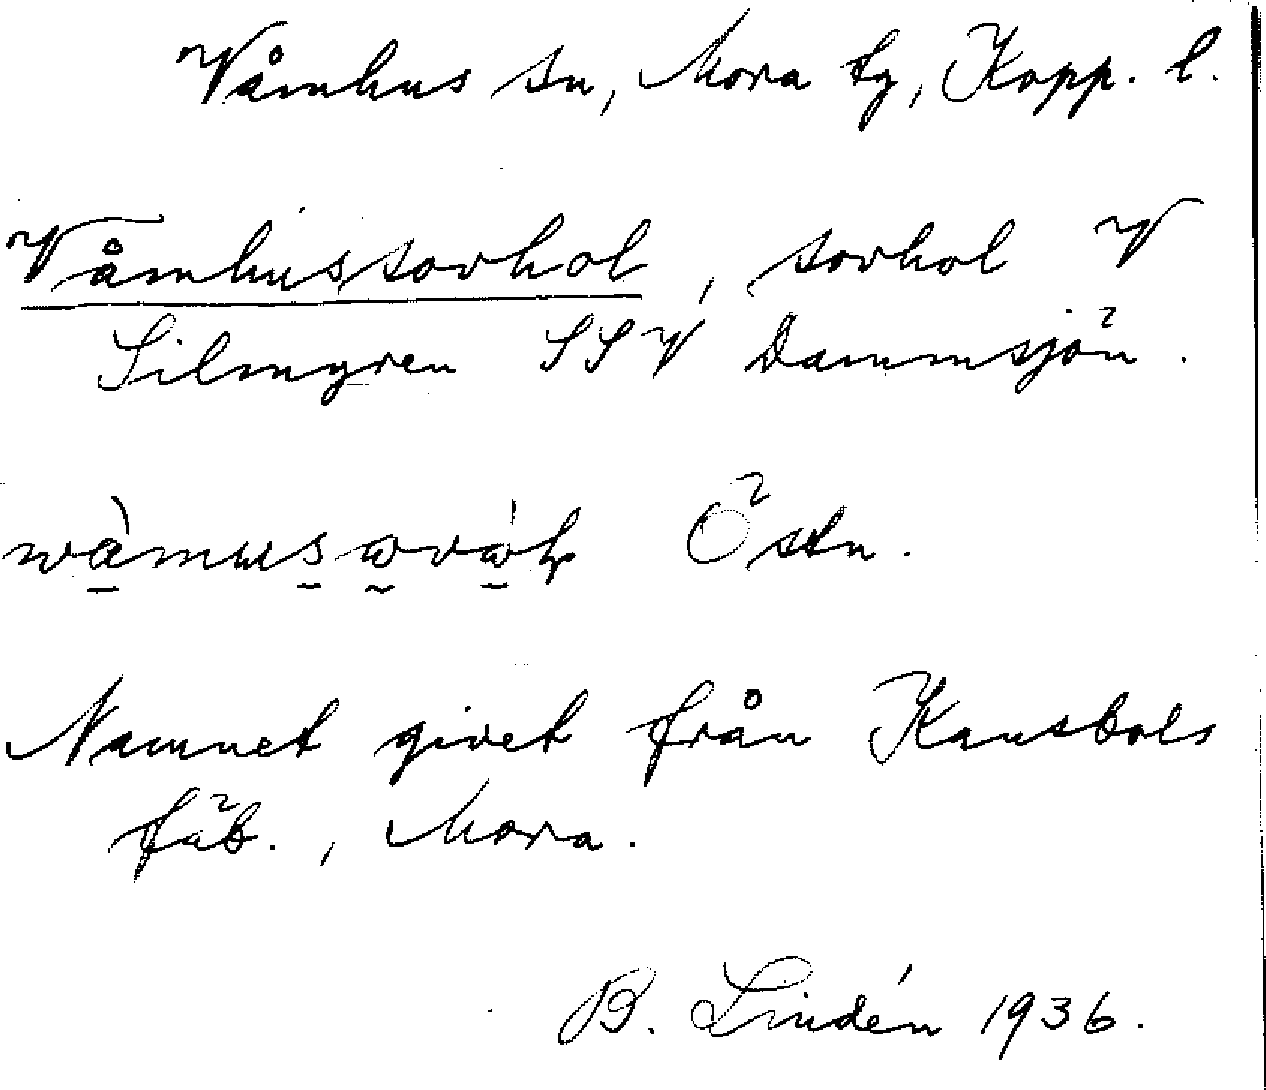 Våmhus sn, Mora tg, Kopp. l.
Våmhussovhol, sovhol V
Silmyren SSV Dammsjön.
Östn.
Namnet givet från Kansbols
fäb., Mora.
B. Lindén 1936.